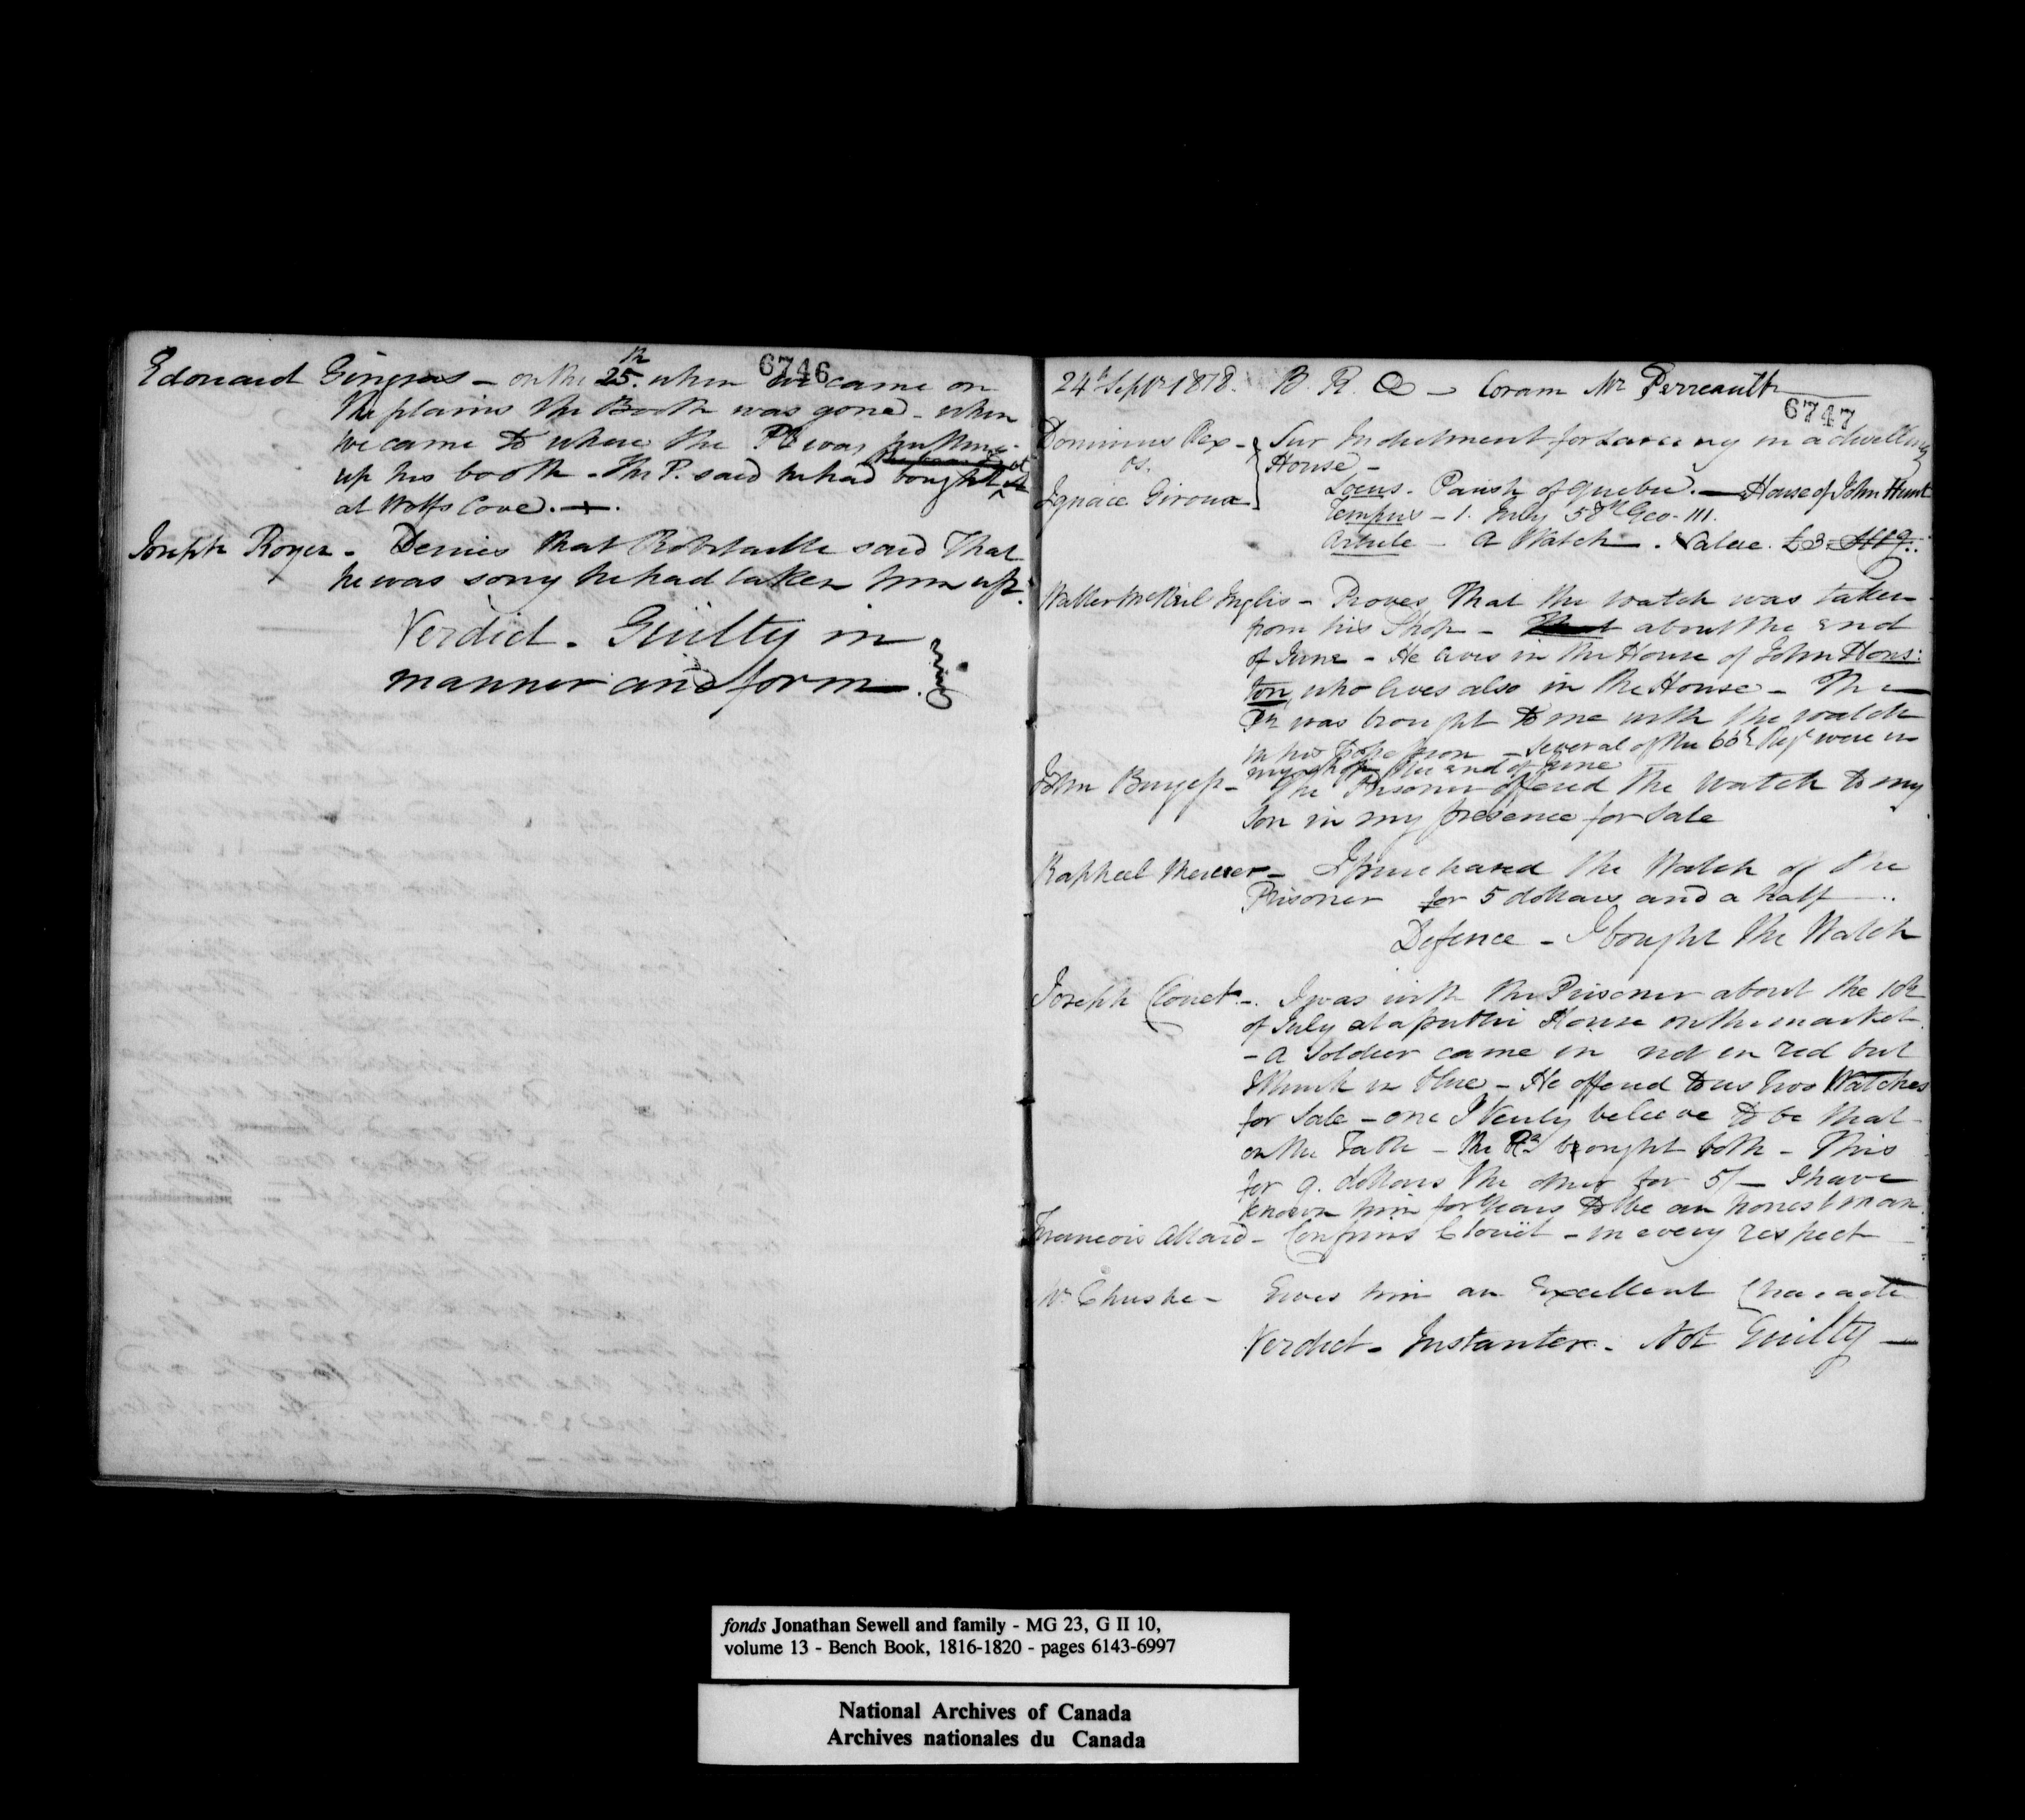 6746
Edouard Gingras - on the 25.th when we came on
the plains the Booth was gone - when
we came to where the Pr was putting
up his booth - The P. said he had bought it
at Wolfs Cove. -+-.
Joseph Royer - Denies that Robitaille said That
he was sorry he had taken him up.
Verdict - Guilty in
manner and form
24th Septr 1818. B. R. Q - Coram Mr Perreault
6747
Dominus Rex - Sur Indictment for Larceny in a dwelling
vs. House -
Ignace Giroux Locus - Parish of Quebec. - House of John Hunt
Tempus - 1. July 58th Geo. III.
Article - a Watch - Value. £3.
Walter McNeil Inglis - Proves That the watch was taken
from his Shop - That about the end
of June - He lives in the House of John Hous:
ton, who lives also in the House - The
Pr was brought to me with the watch
in his Possession - Several of the 60th Regt were in
my shop the end of June
John Burgess - The Prisoner offered the Watch to my
Son in my presence for Sale
Raphael - I purchased the Watch of the
Prisoner for 5 dollars and a half
Defence - I bought the Watch
Joseph Clouet -. I was with the Prisoner about the 10th
of July at a public House on the market
- a Soldier came in not in red but
I think in blue - He offered to us two Watches
for Sale - one I verily believe to be that
on the Table - the Pr bought both - This
for 9. dollars the other for 5/- I have
known him for years to be an honest man.
Francois Allard - Confirms Clouët - in every respect
Mr Christie - Gives him an Excellent Character
Verdict - Instanter. - Not Guilty -
fonds Jonathan Sewell and family - MG 23, G II 10,
volume 13 - Bench Book, 1816-1820 - pages 6143-6997
National Archives of Canada
Archives nationales du Canada